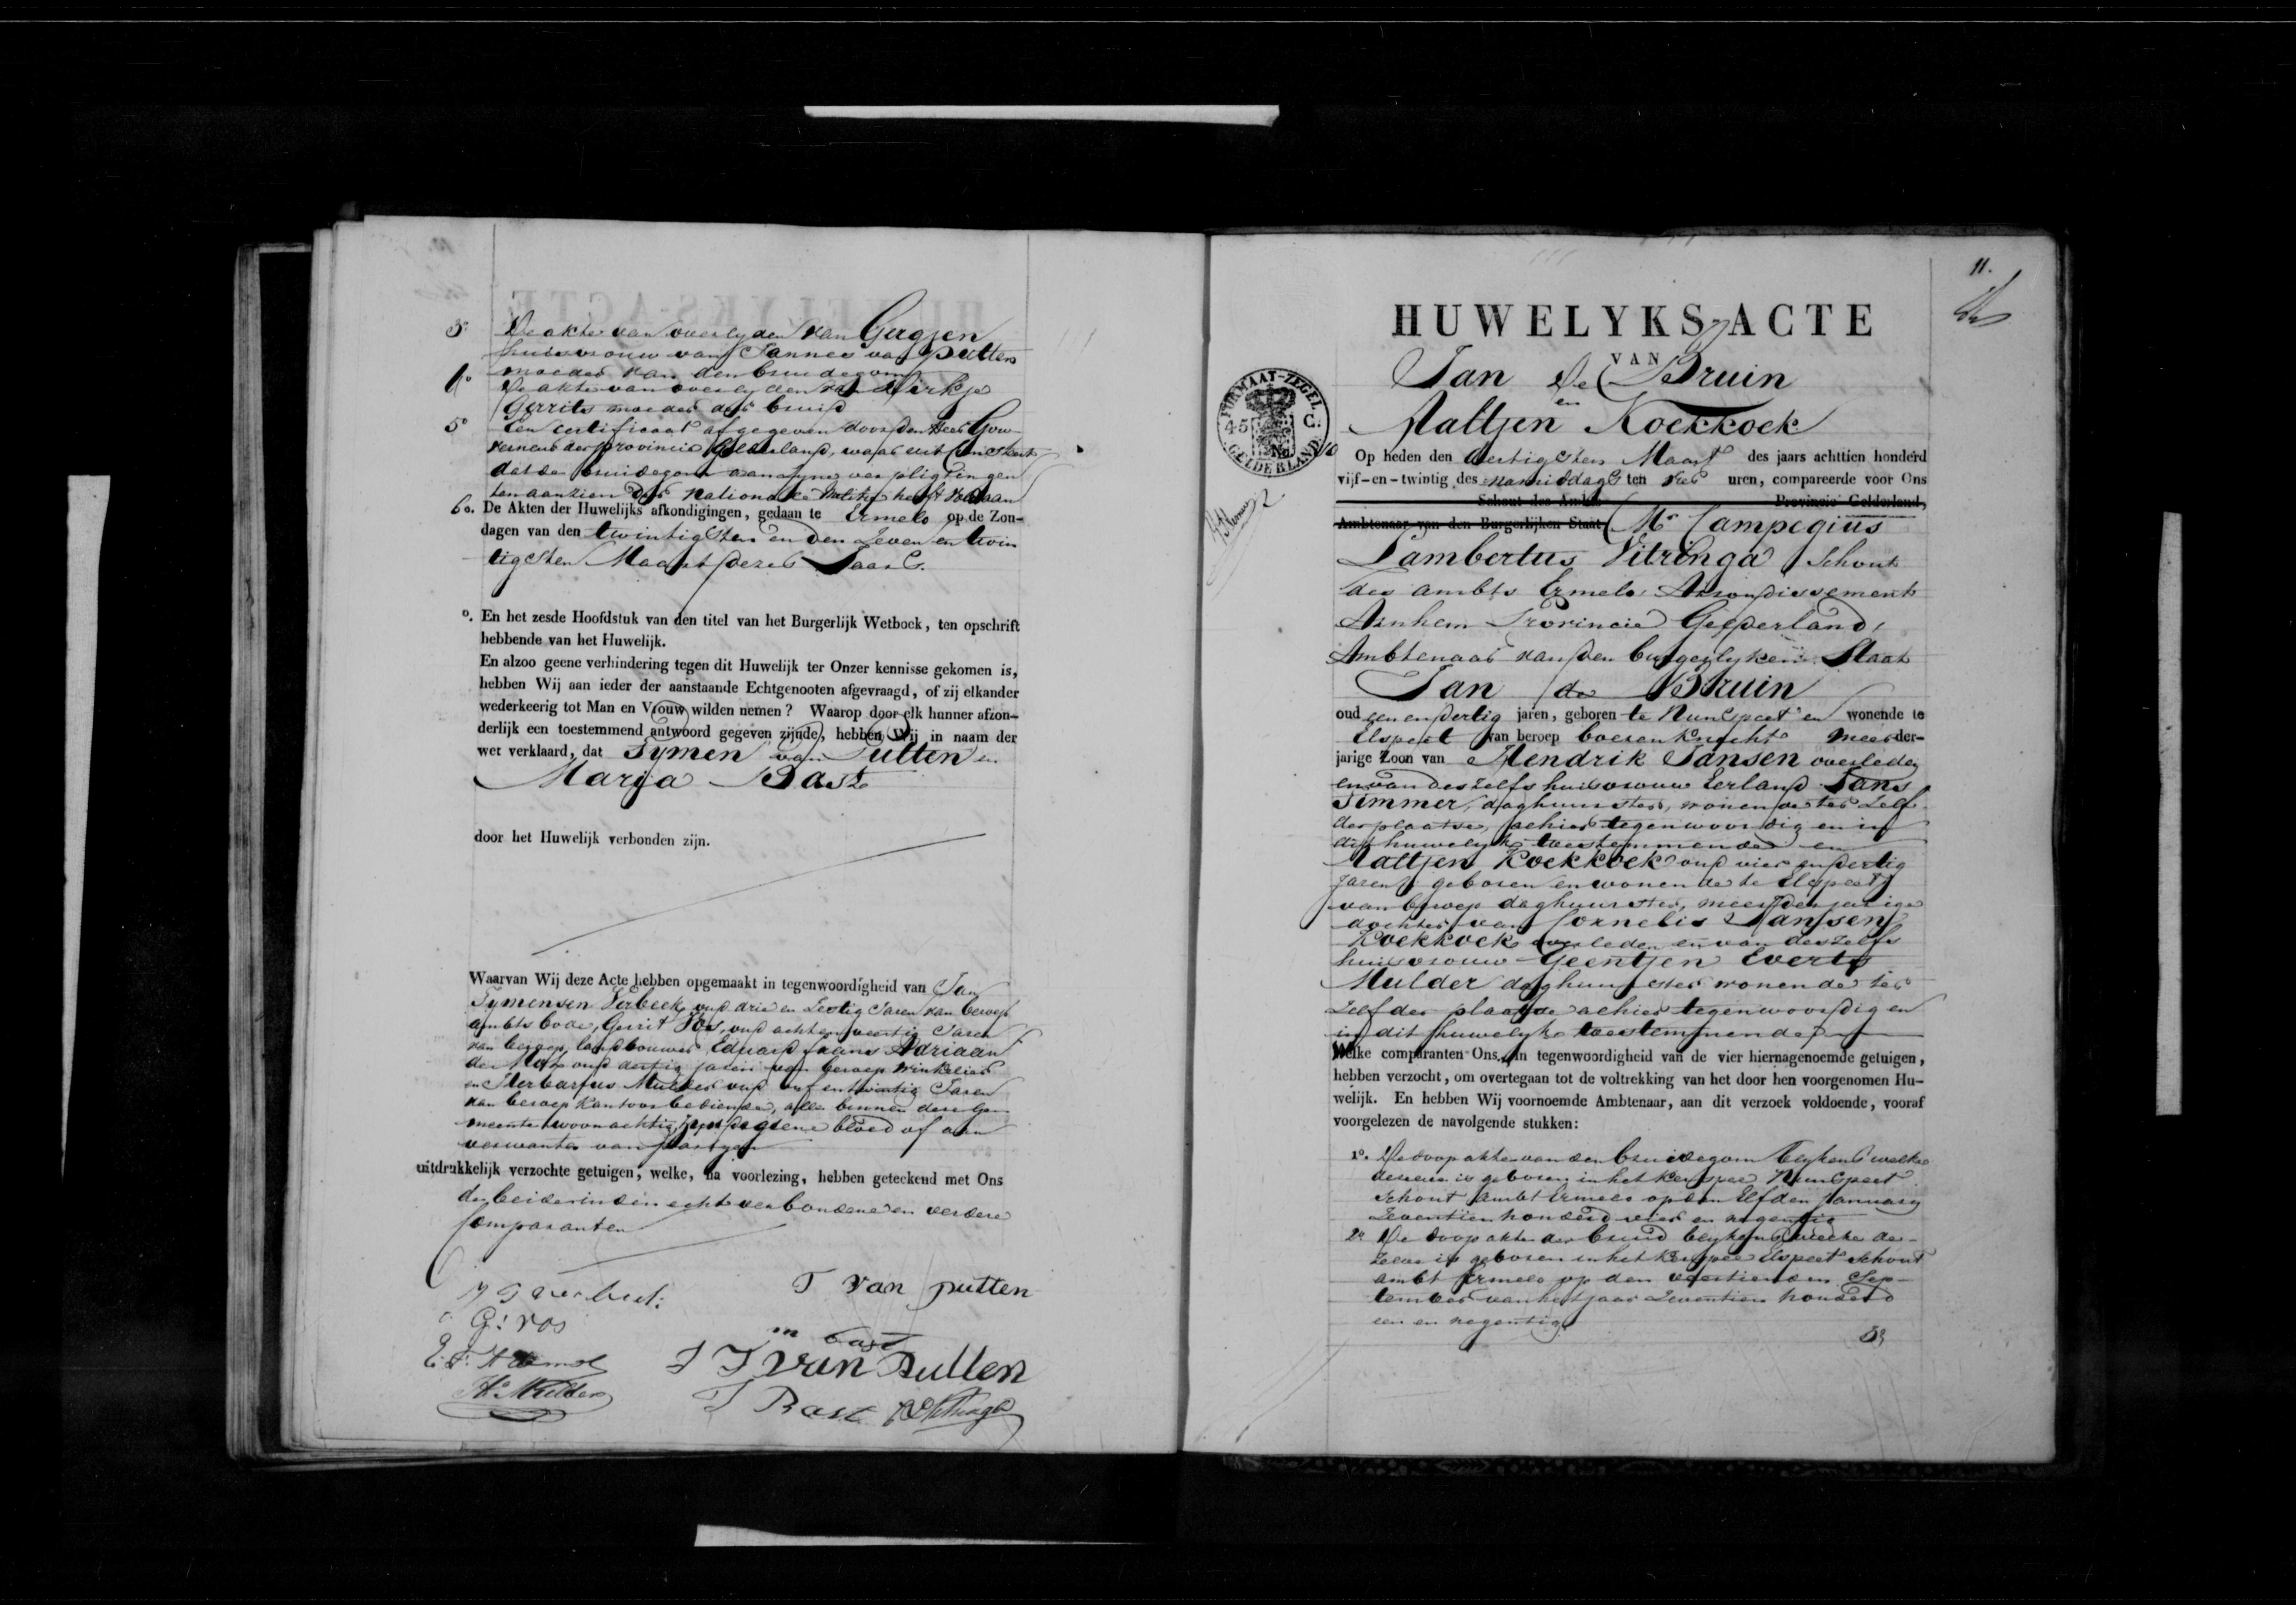 3o De akte van overlyden van Gergjen
huisvrouw van Jannes van Putten
moeder van den bruidegom
4o De akte van overlyden van Dirkje
Gerrits moeder der bruid
5o Een certificaat afgegeven door den Heer Gouverneur der provincie Gelderland, waar uit
dat de bruidegom aan zyne verpligtingen
ten aanzien der Nationale Militie heeft voldaan
6o. De Akten der Huwelijks afkondigingen, gedaan te Ermelo op de Zon-
dagen van den twintigsten en den Zeven en twin
tigsten Maart dezes Jaars.
o. En het zesde Hoofdstuk van den titel van het Burgerlijk Wetboek, ten opschrift
hebbende van het Huwelijk.
En alzoo geene verhindering tegen dit Huwelijk ter Onzer kennisse gekomen is,
hebben Wij aan ieder der aanstaande Echtgenooten afgevraagd, of zij elkander
wederkeerig tot Man en Vrouw wilden nemen? Waarop door elk hunner afzon-
derlijk een toestemmend antwoord gegeven zijnde, hebben Wij in naam der
wet verklaard, dat Tymen van Putten en
Marya Bast
door het Huwelijk verbonden zijn.
Waarvan Wij deze Acte hebben opgemaakt in tegenwoordigheid van Jan
Tymensen Verbeek, oud drie en Zestig Jaren van beroep
ambts bode, Gerrit Vos, oud acht en veertig Jaren
van beroep landbouwer, Eduard Frans Adriaan
de Mol oud dertig jaren van beroep winkelier
en Herbartus Mulder oud en twintig Jaren
van beroep Kantoor bediende, alle binnen deze Ge-
meente woonachtig, geene bloed of aan
verwanten van partyen
uitdrukkelijk verzochte getuigen, welke, na voorlezing, hebben geteekend met Ons
de beide in den echt verbondene en verdere
Comparanten
T van putten
G: vos
m bast
J J van Putten
H. Mulder
J Bast
11.
HUWELYKS-ACTE
VAN
Jan De Bruin
en
Aaltjen Koekkoek
FORMAAT-ZEGEL
45 C.
No
GELDERLAND
Op heden den dertigsten Maart des jaars achttien honderd
vijf-en-twintig des namiddags ten vier uren, compareerde voor Ons
Schout des Ambts Provincie Gelderland,
Ambtenaar van den Burgerlijken Staat Mr Campegius
Lambertus Vitringa Schout
des ambts Ermelo, Arrondissement
Arnhem Provincie Gelderland,
Ambtenaar van den burgerlyken Staat
Jan de Bruin
oud een en dertig jaren, geboren te Nunspeet en wonende te
Elspeet van beroep boeren knecht meerder-
jarige Zoon van Hendrik Jansen overleden
en van deszelfs huisvrouw Eerland Jans
Timmer, daghuurster, wonende ter Zelf
der plaatse, alhier tegenwoordig en in
dit huwelyk toestemmende en
Aaltjen Koekkoek oud vier en dertig
jaren, geboren en wonende te Elspeet
van beroep daghuurster, meerderjarige
dochter van Cornelis Janssen
Koekkoek overleden en van deszelfs
huisvrouw Geentjen Everts
Mulder daghuurster wonende ter
Zelfder plaatse alhier tegenwoordig en
in dit huwelyk toestemmende
Welke comparanten Ons, in tegenwoordigheid van de vier hiernagenoemde getuigen,
hebben verzocht, om overtegaan tot de voltrekking van het door hen voorgenomen Hu-
welijk. En hebben Wij voornoemde Ambtenaar, aan dit verzoek voldoende, vooraf
voorgelezen de navolgende stukken:
1o. De doop akte van den bruidegom blykens welke
dezelve is geboren in het Kerspel Nunspeet
Schout Ambt Ermelo op den Elfden January
Zeventien honderd vier en negentig
2o De doop akte der bruid blykens welke de-
zelve is geboren in het Kerspel Elspeet Schout
ambt Ermelo op den veertienden Sep-
tember van het jaar Zeventien honderd
een en negentig